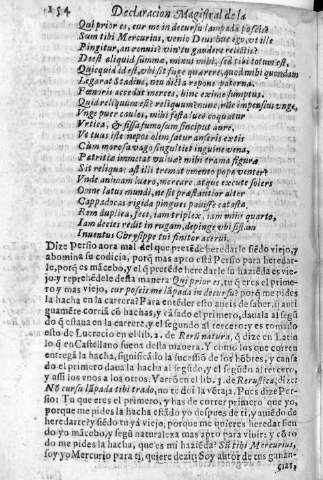 154 Declaracion Magistral de la
Qui prior es, cur me in decursu lampada poscis?
Sum tibi Mercurius, venio Deus huc ego, vt ille
Pingitur, an rennuis? vin' tu gaudere relictis?
Deest aliquid summæ, minui mihi, sed tibi totum est,
Quicquid id est, vbi sit fuge quærere, quod mihi quondam
Legarat Stadius, neu dicta repone paterna.
Fœnoris accedat merces, hinc exime sumptus.
Quid reliquum est? reliquum? nunc, nunc impensius vnge,
Vnge puer caules, mihi festa luce coquatur
Vrtica, & fissa fumosum sinciput aure,
Vt tuus iste nepos olim satur anseris extis
Cum morosa vago singultiet inguine vena,
Patritiæ immeiat vuluæ? mihi trama figuræ
Sit reliqua: ast illi tremat omento popa venter?
Vende animam lucro, mercare, atque excute solers
Omne latus mundi, ne sit præstantior alter
Cappadocas rigida pingues pauisse catasta,
Rem duplica, feci, iam triplex, iam mihi quarto,
Iam decies redit in rugam, depinge vbi sistam
Inuentus Chrysippe tui finitor acerui.
Dize Persio aora mal del que pretẽde heredarle siẽdo viejo, y
abomina su codicia, porq̃ mas apto està Persio para heredar-
le, porq̃ es mãcebo, y el q̃ pretẽde heredarle su haziẽda es vie-
jo, y reprehẽdele desta manera Qui prior es, tu q̃ eres el prime-
ro y mas viejo, cur poscis me lãpada in decursu? porq̃ me pides
la hacha en la carrera? Para entẽder esto aueis de saber, q̃ anti
guamẽte corriã cõ hachas, y cãsado el primero, dauala al segũ
do q̃ estaua en la carrera, y el segundo al tercero: y es tomado
esto de Lucrecio en el lib. 2. de Rerũ natura, q̃ dize en Latin
lo q̃ en Castellano suena desta manera. Y como los que corren
entregã la hacha, significãdo la sucessiõ de los hõbres, y cansa
do el primero dauã la hacha al segũdo, y el segũdo al tercero,
y assi los vnos a los otros. Varrõ en el lib. 3. de Rerustica, dize:
Nõ cursu lãpada tibi trado, no te doi la vẽtaja. Pues dize Per-
sio: Tu que eres el primero, y has de correr primero que yo,
porque me pides la hacha estãdo yo despues de ti, y auiẽdo de
heredarte? y siẽdo tu ya viejo, porque me quieres heredar siẽn
do yo mãcebo, y segũ naturaleza mas apto para viuir; y cõ to
do me pides la hacha, que es mi haziẽda? Sũ tibi Mercurius,
soy yo Mercurio para ti, quiere dezir: Soy autor de tus ganan-